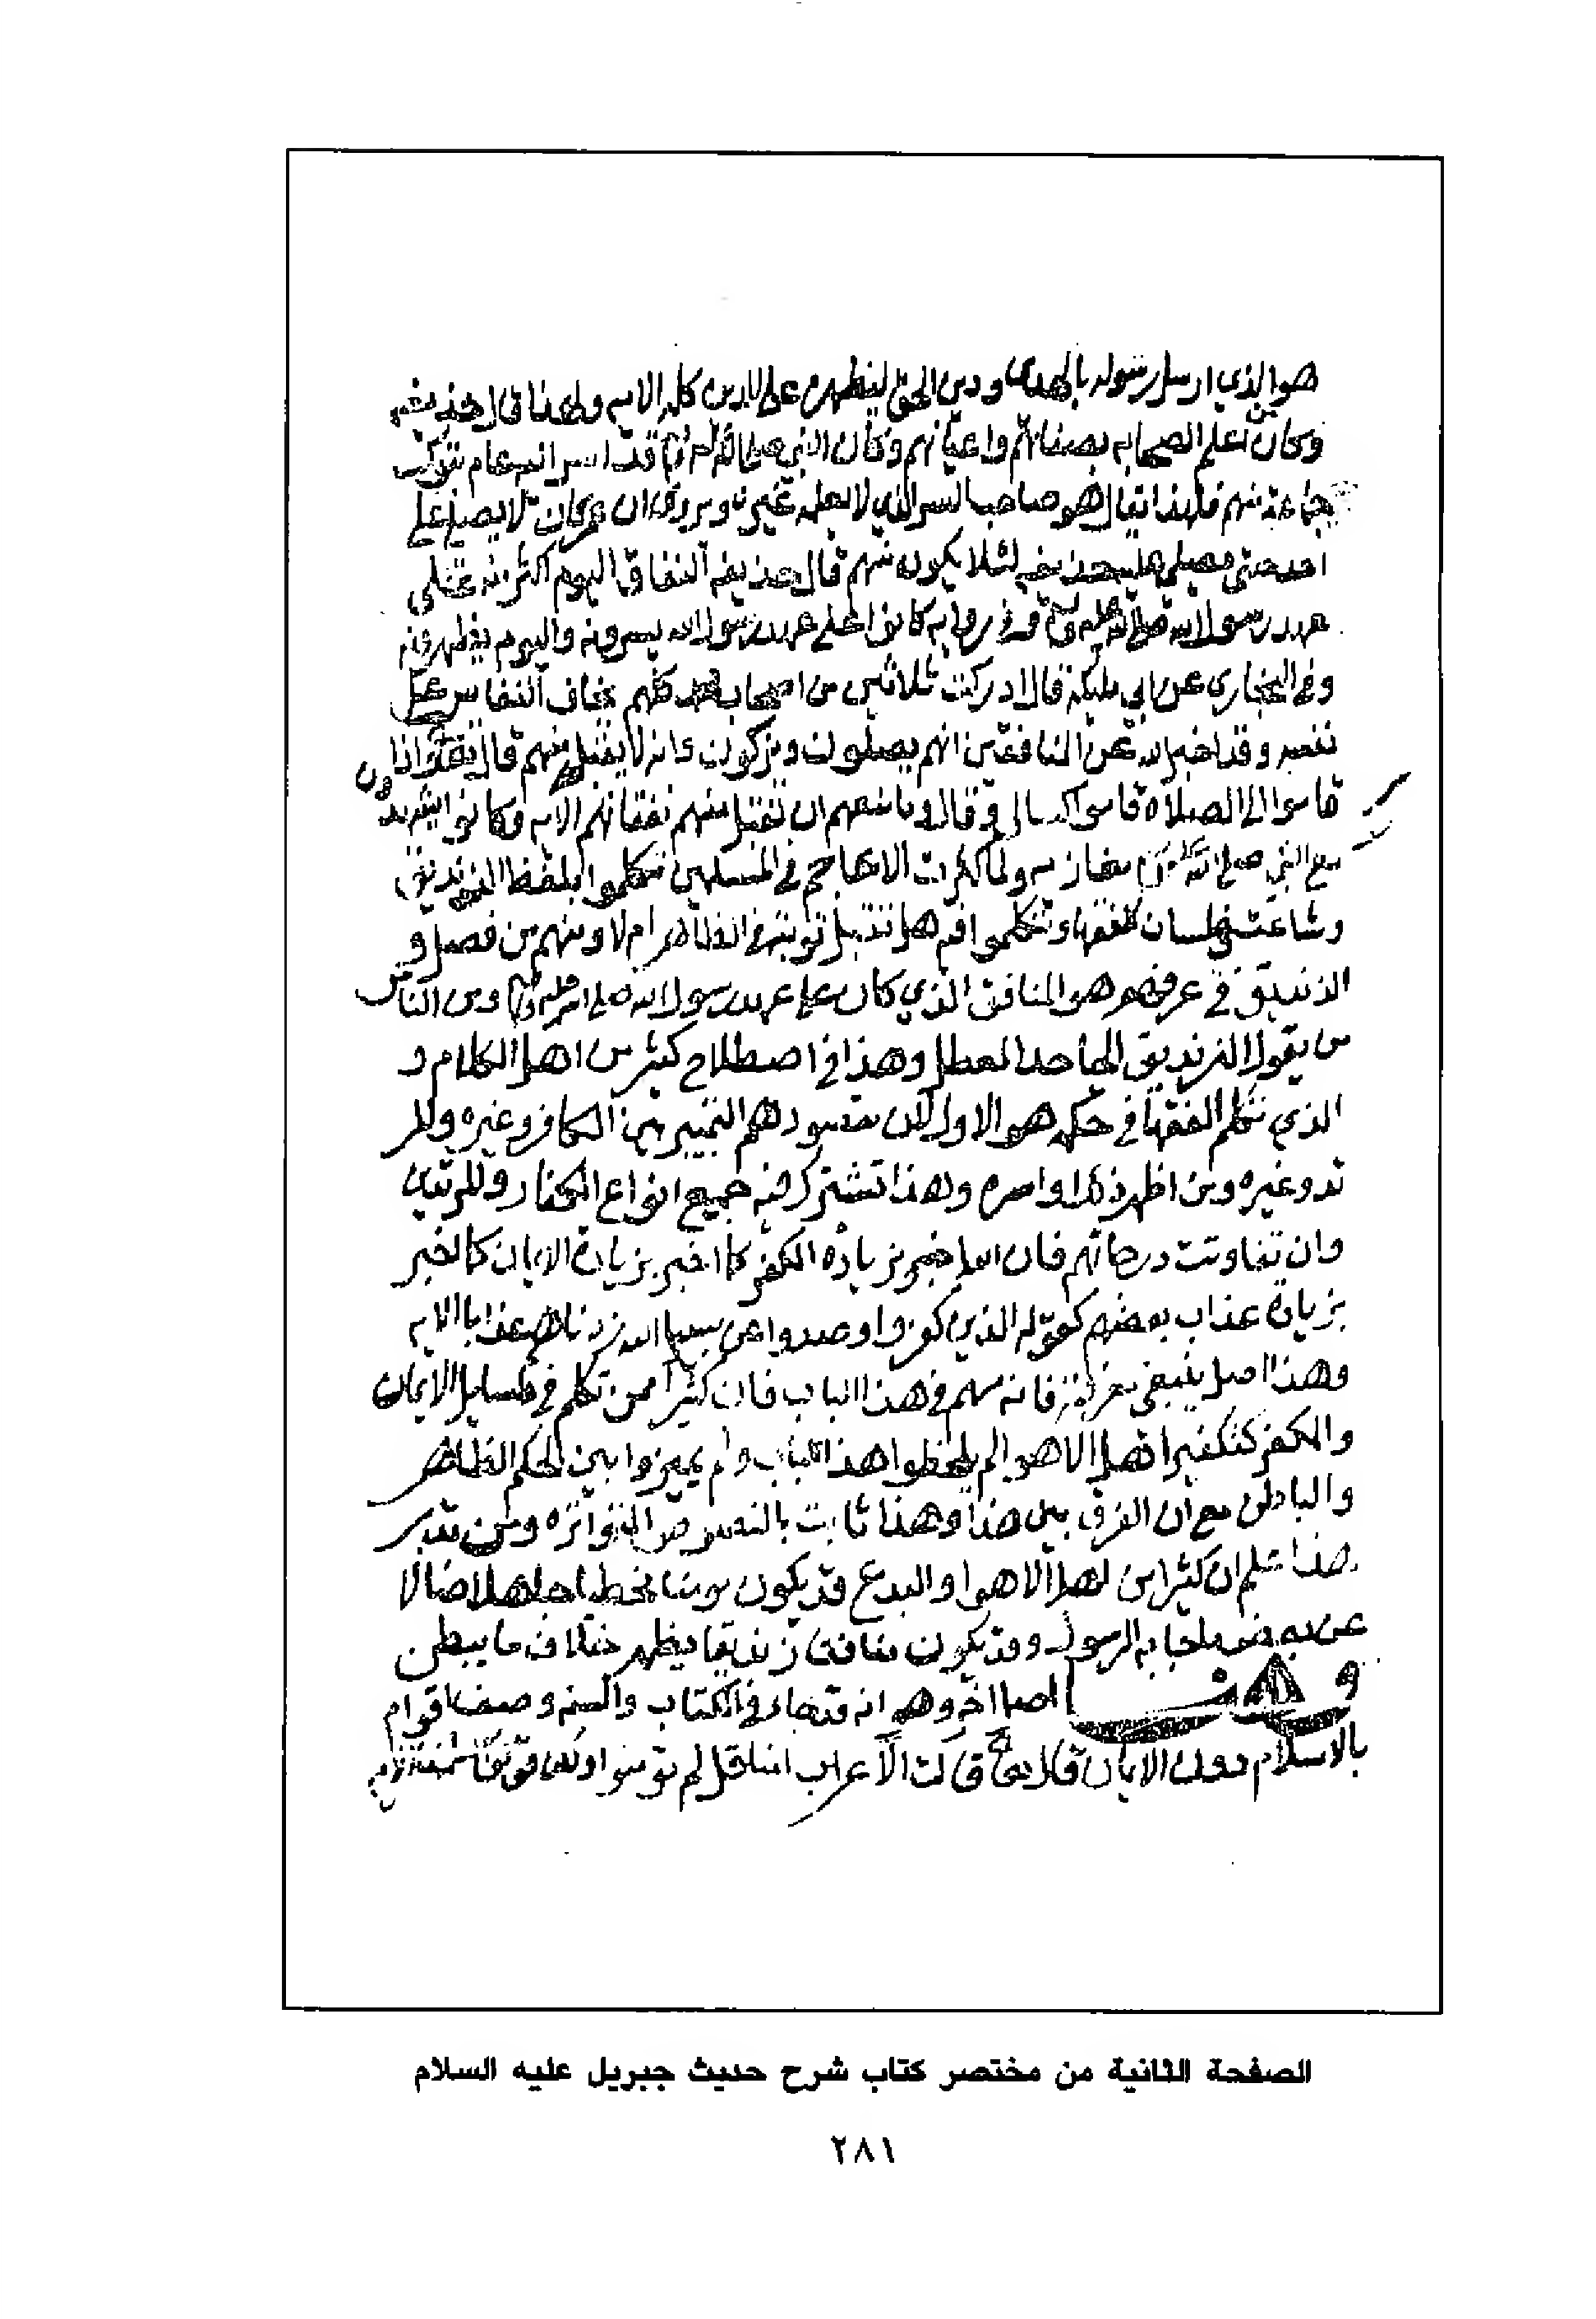 هو الذي ارسل رسوله بالهدى ودين الحق ليظهره على الدين كله الايه ولهذا
وكان من اعلم الصحابه بصفاتهم واعيانهم وكان النبي صلى الله عليه وسلم قد اسر اليه عام تبوك
جماعة منهم فلهذا يقال هو صاحب السر الذي لا يعلمه غيره ويروى ان عمر كان لا يصلي على
احد حتى يصلي عليه حذيفه لئلا يكون منهم قال حذيفه النفاق اليوم اكثر منه على
عهد رسول الله صلى الله عليه وسلم وفي روايه كانوا على عهد رسول الله يسرونه واليوم يظهرونه
وفي البخاري عن ابي مليكه قال ادركت ثلاثين من اصحاب محمد كلهم يخاف النفاق على
نفسه وقد اخبر الله عن المنافقين انهم يصلون ويزكون وانه لا يقبل منهم قال تعالى واذا
قاموا الى الصلاة قاموا كسالى وقال وما منعهم ان تقبل منهم نفقاتهم الايه وكانوا يشهدون
مع النبي صلى الله عليه وسلم مغازيه ولما كثرت الاعاجم في المسلمين تكلموا بلفظ الزنديق
وشاعت في لسان الفقهاء وتكلموا فيه هل تقبل توبته في الظاهر ام لا ومنهم من فصل و
الزنديق في عرفهم هو المنافق الذي كان على عهد رسول الله صلى الله عليه وسلم ومن الناس
من يقول الزنديق الجاحد المعطل وهذا في اصطلاح كثير من اهل الكلام و
الذي تكلم الفقهاء في حكمه هو الاول لان مقصودهم التمييز بين الكافر وغيره والمر
تد وغيره ومن اظهر ذلك او اسره وهذا تشترك فيه جميع انواع الكفار والمرتدين
وان تفاوتت درجاتهم فان الله اخبر بزيادة الكفر كما اخبر بزيادة الايمان كما اخبر
بزيادة عذاب بعضهم كقوله الذين كفروا وصدوا عن سبيل الله زدناهم عذابا الايه
وهذا اصل ينبغي معرفته فانه مهم في هذا الباب فان كثيرا ممن تكلم في مسايل الايمان
والكفر كتكفير اهل الاهوا لم يلحظوا هذا الباب ولم يميزوا بين الحكم الظاهر
والباطن مع ان الفرق بين هذا وهذا ثابت بالنصوص المتواتره ومن تدبر
هذا علم ان كثيرا من اهل الاهوا والبدع قد يكون مومنا مخطيا جاهلا ضالا
عن بعض ما جا به الرسول وقد يكون منافقا زنديقا يظهر خلاف ما يبطن
و اصل اخر وهو انه قد جاء في الكتاب والسنه وصف اقوام
بالاسلام دون الايمان قال تعالى قالت الاعراب امنا قل لم تومنوا ولكن قولوا اسلمنا الايه
الصفحة الثانية من مختصر كتاب شرح حديث جبريل عليه السلام
٢٨١